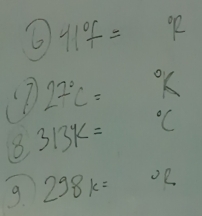 6) 41°F = °R
7) 27°C = °K
8. 313°K = °C
9. 298 K = °R